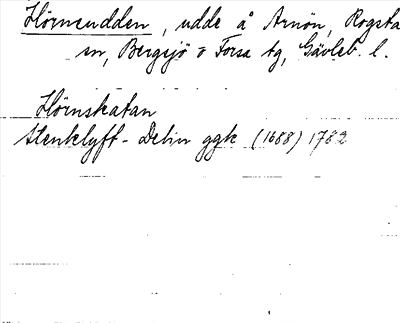 Hörnsudden, udde å Arnön, Rogsta
sn, Bergsjö o Forsa tg, Gävleb. l.
Hörnskatan
Stenklyft-Delin ggk (1688) 1782